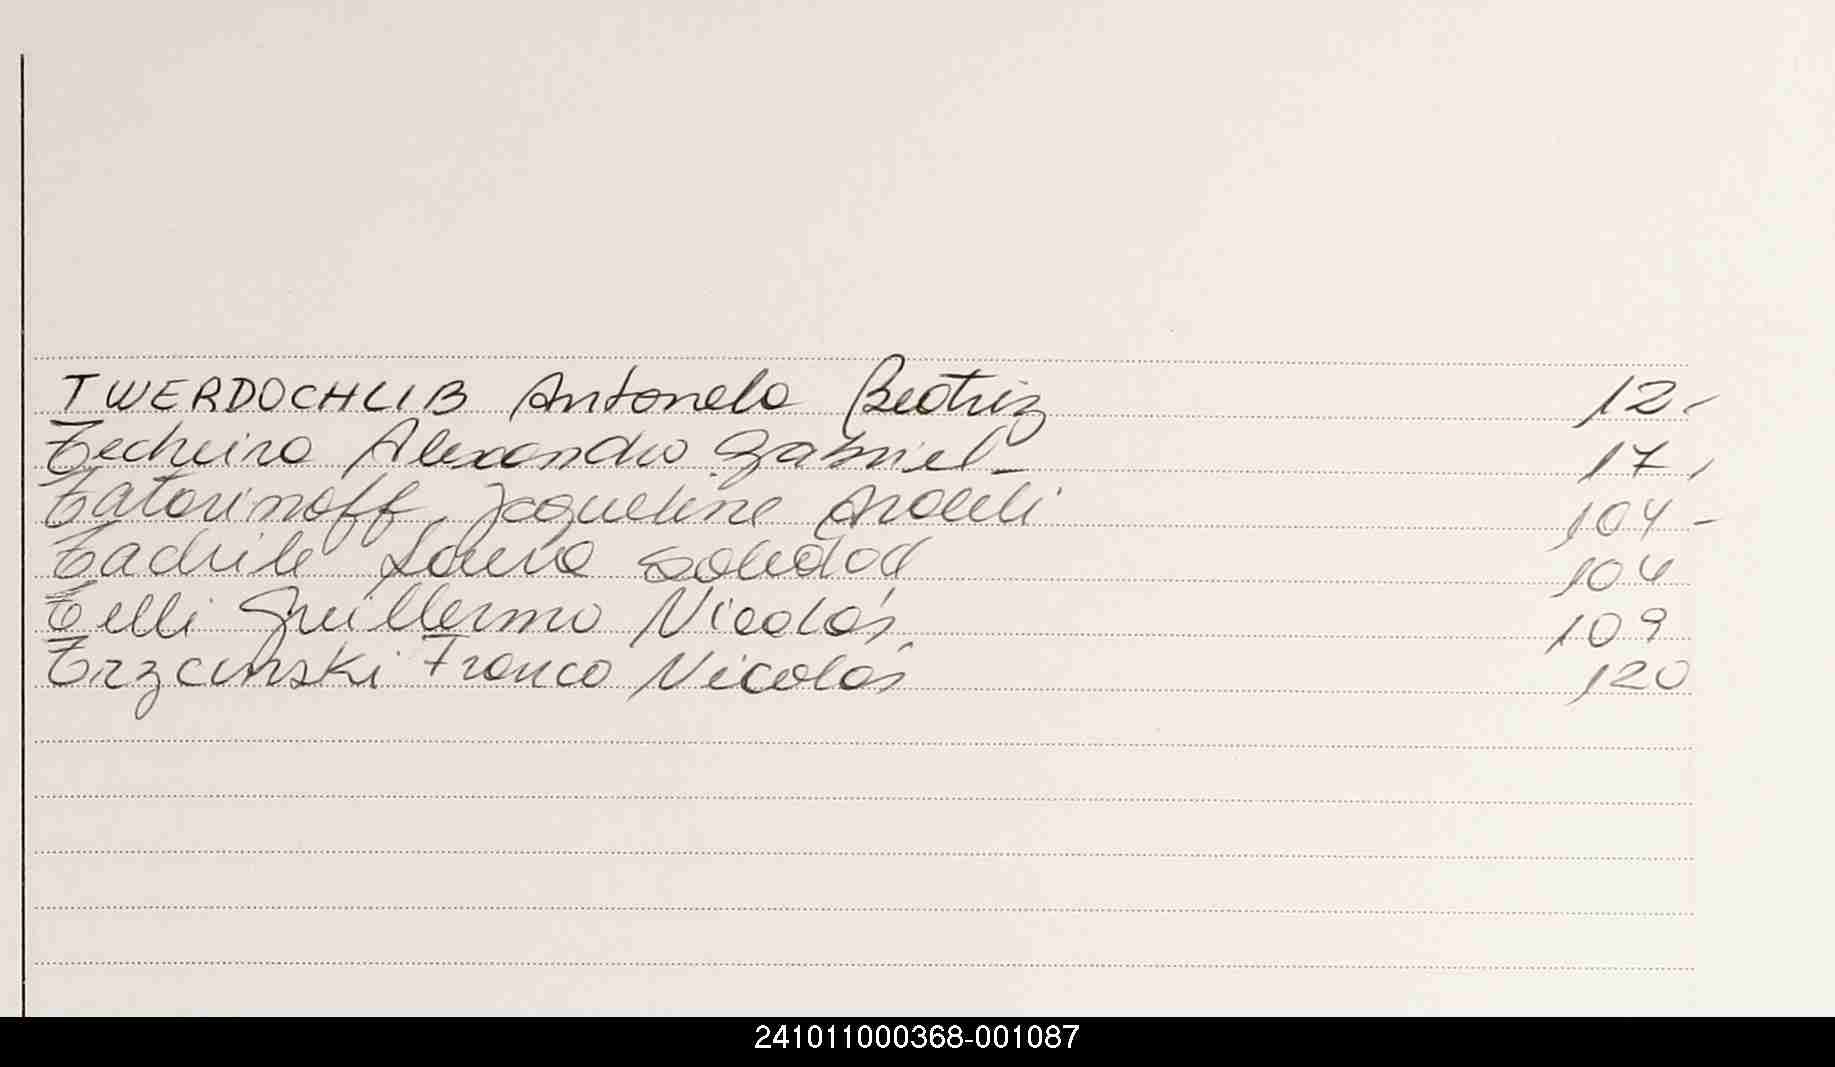 TWERDOCHLIB Antonela Beatriz 12-
Techeira Alexandro Gabriel- 17,
Tatarinoff, Jaqueline Araceli 104-
Tadrile Laura Soledad 104
Telli Guillermo Nicolás 109
Trzcinski Franco Nicolás 120
241011000368-001087